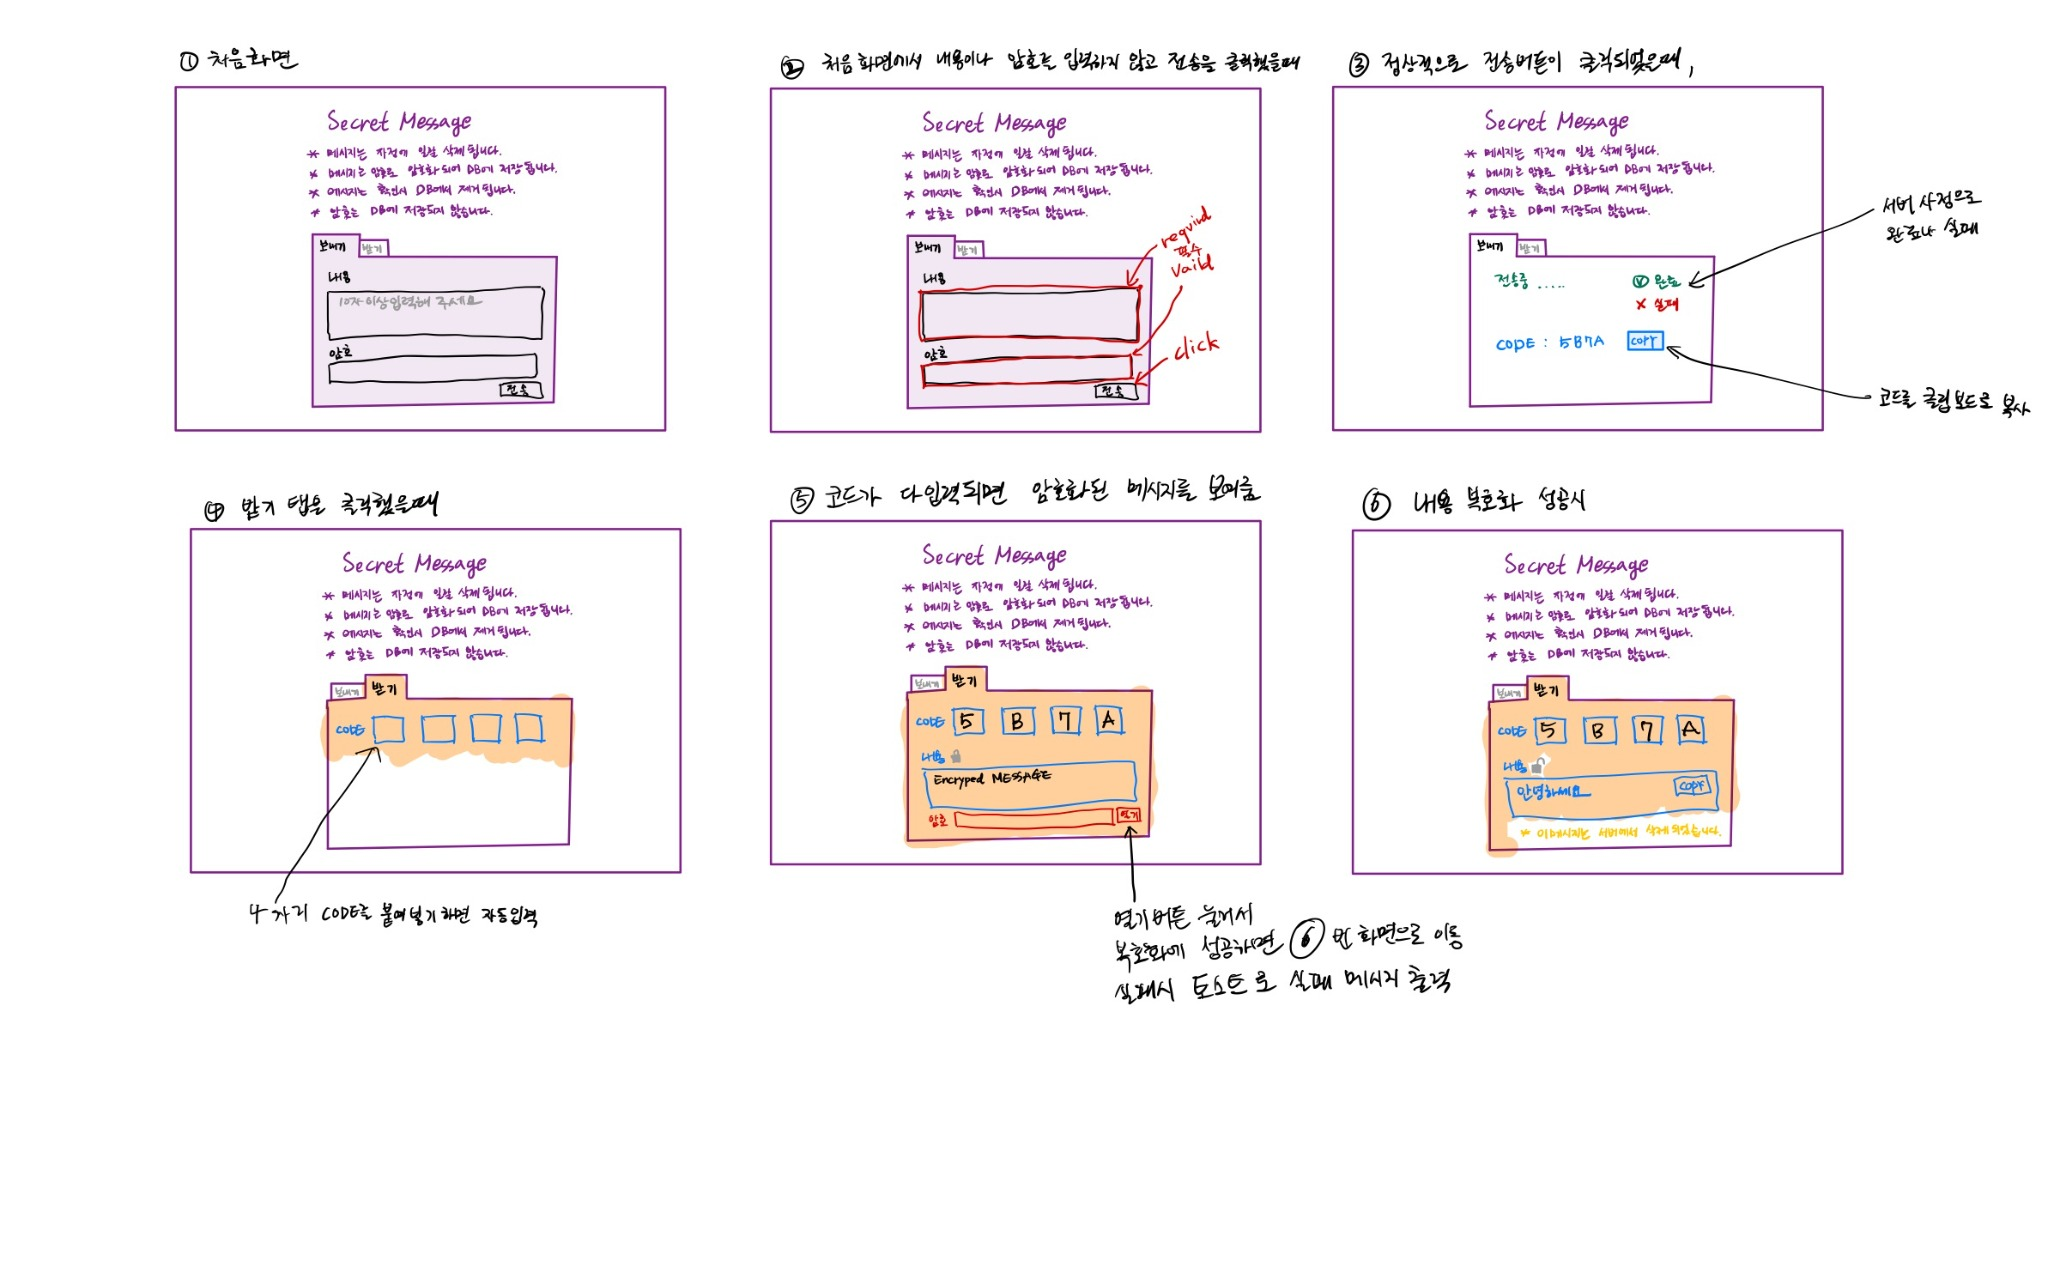 ① 처음화면
Secret Message
* 메시지는 자정에 일괄 삭제됩니다.
* 메시지는 암호로 암호화되어 DB에 저장됩니다.
* 메시지는 확인시 DB에서 제거됩니다.
* 암호는 DB에 저장되지 않습니다.
보내기 받기
내용
10자이상입력해 주세요
암호
전송
② 처음화면에서 내용이나 암호를 입력하지 않고 전송을 클릭했을때
Secret Message
* 메시지는 자정에 일괄 삭제됩니다.
* 메시지는 암호로 암호화되어 DB에 저장됩니다.
* 메시지는 확인시 DB에서 제거됩니다.
* 암호는 DB에 저장되지 않습니다.
보내기 받기
내용
암호
전송
required
필수
Vaild
click
③ 정상적으로 전송버튼이 클릭되었을때,
Secret Message
* 메시지는 자정에 일괄 삭제됩니다.
* 메시지는 암호로 암호화되어 DB에 저장됩니다.
* 메시지는 확인시 DB에서 제거됩니다.
* 암호는 DB에 저장되지 않습니다.
보내기 받기
전송중 ..... ⓥ 완료
X 실패
CODE : 5B7A copy
서버 사정으로
완료나 실패
코드를 클립보드로 복사
④ 받기 탭을 클릭했을때
Secret Message
* 메시지는 자정에 일괄 삭제됩니다.
* 메시지는 암호로 암호화되어 DB에 저장됩니다.
* 메시지는 확인시 DB에서 제거됩니다.
* 암호는 DB에 저장되지 않습니다.
보내기 받기
CODE
4자리 CODE를 붙여넣기하면 자동입력
⑤ 코드가 다입력되면 암호화된 메시지를 보여줌
Secret Message
* 메시지는 자정에 일괄 삭제됩니다.
* 메시지는 암호로 암호화되어 DB에 저장됩니다.
* 메시지는 확인시 DB에서 제거됩니다.
* 암호는 DB에 저장되지 않습니다.
보내기 받기
CODE 5 B 7 A
내용
Encryped MESSAGE
암호 열기
열기버튼 눌러서
복호화에 성공하면 ⑥ 번 화면으로 이동
실패시 토스트로 실패 메시지 출력
⑥ 내용 복호화 성공시
Secret Message
* 메시지는 자정에 일괄 삭제됩니다.
* 메시지는 암호로 암호화되어 DB에 저장됩니다.
* 메시지는 확인시 DB에서 제거됩니다.
* 암호는 DB에 저장되지 않습니다.
보내기 받기
CODE 5 B 7 A
내용
안녕하세요 copy
* 이메시지는 서버에서 삭제되었습니다.